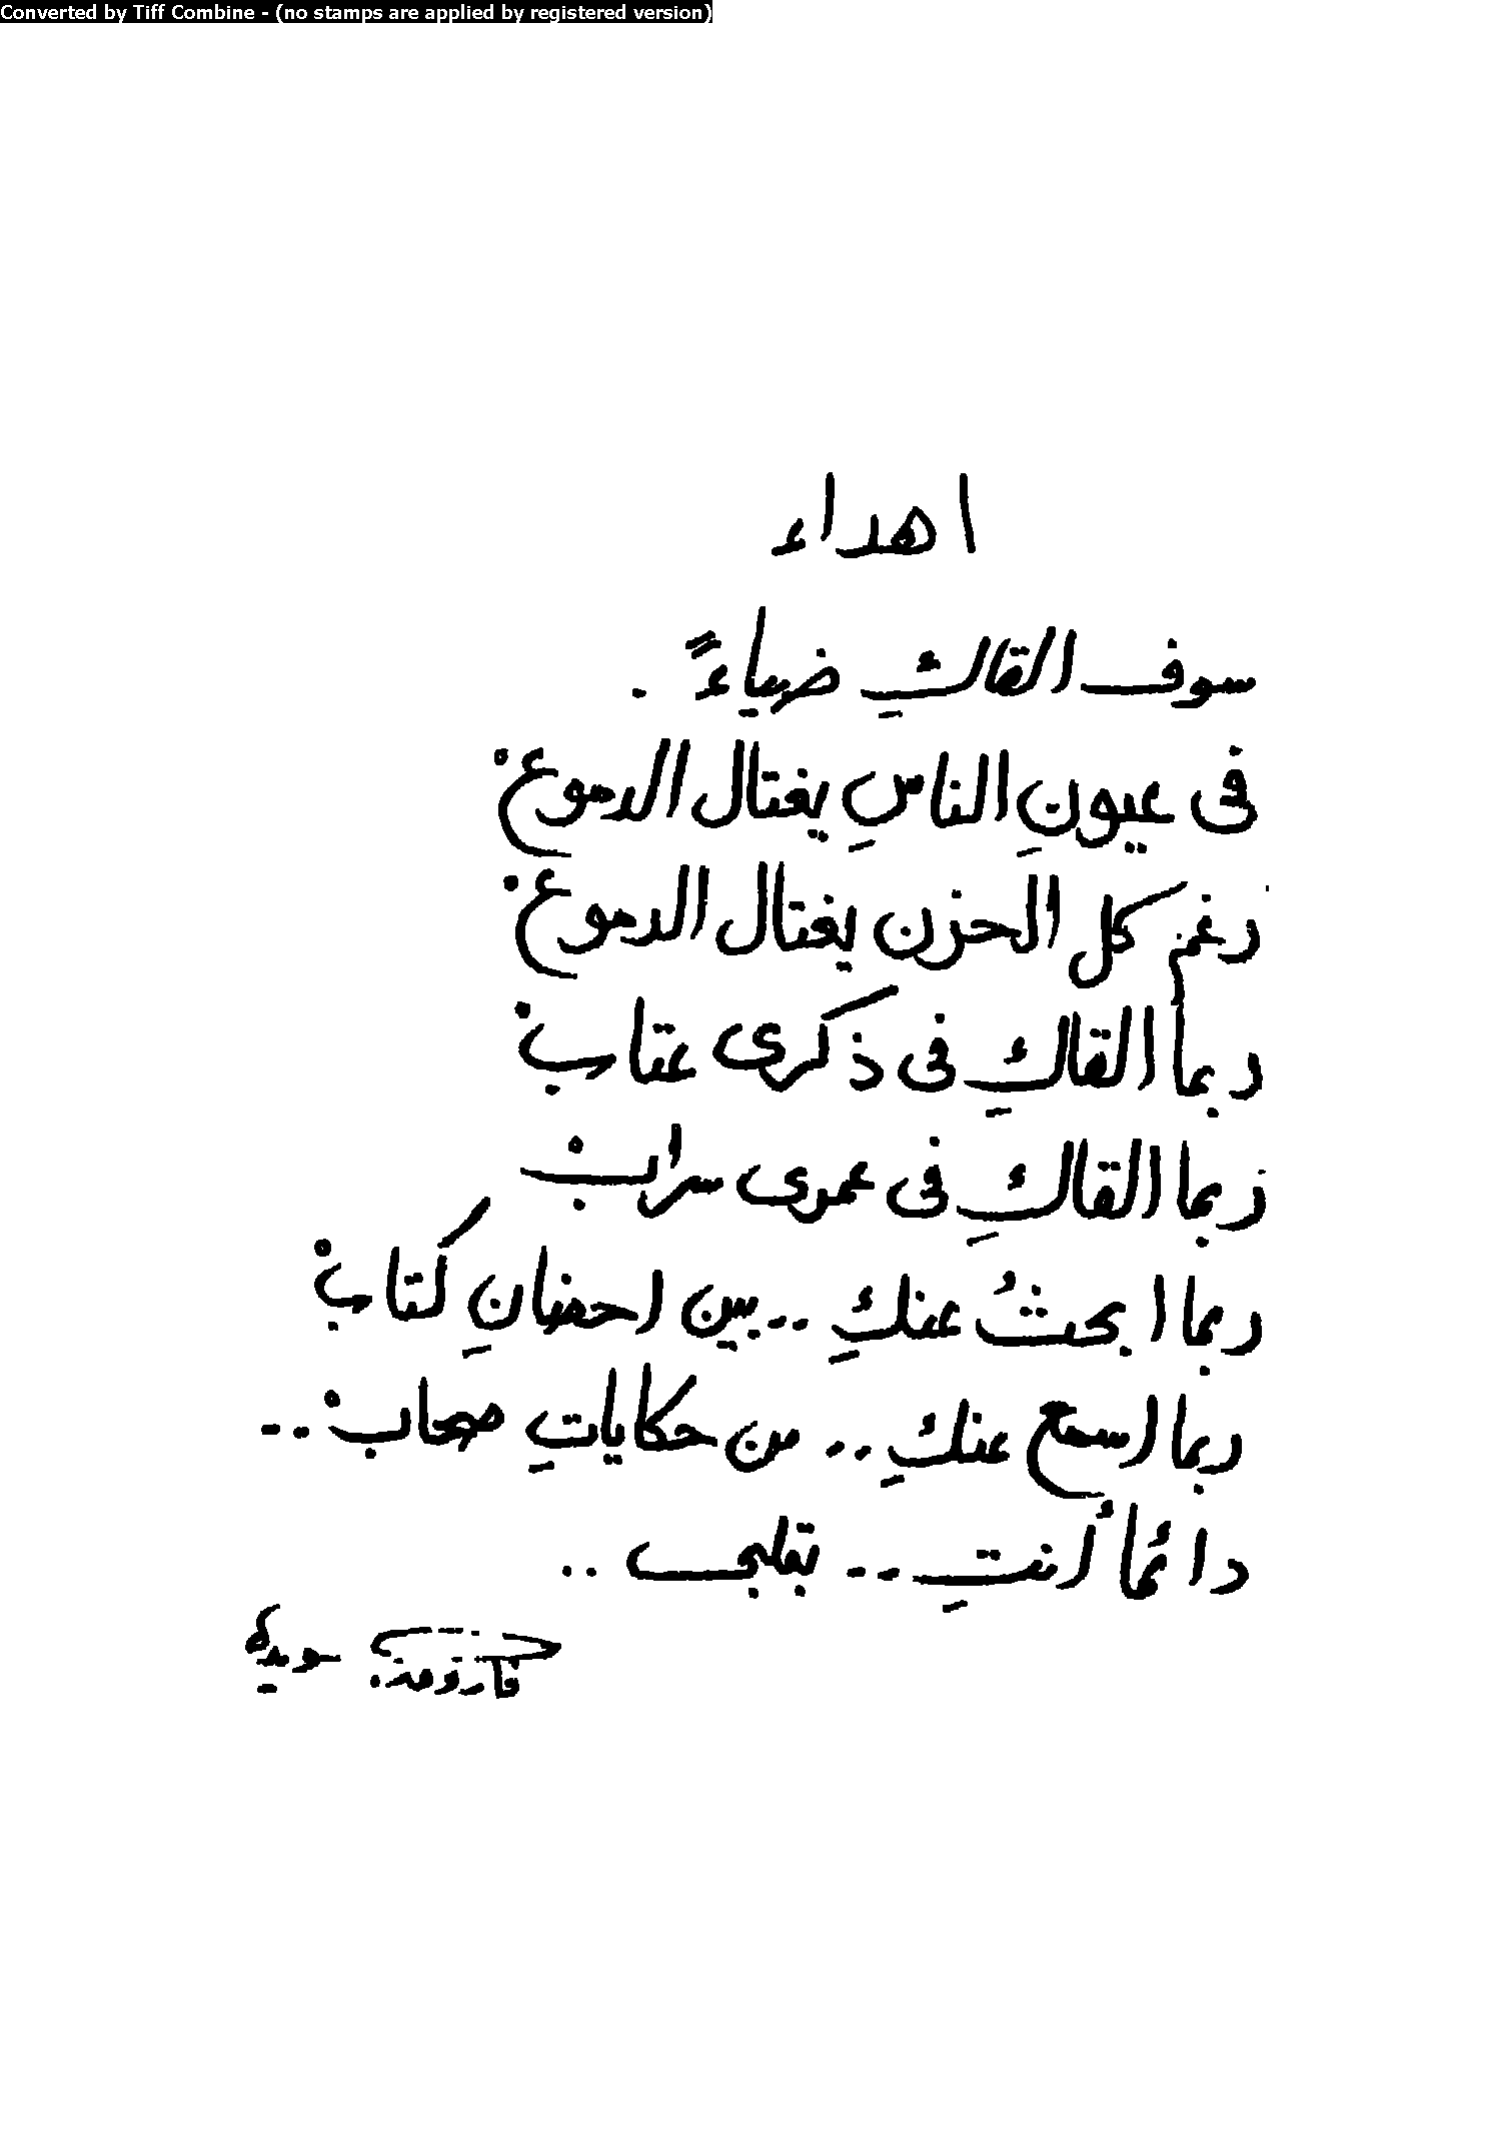 Converted by Tiff Combine - (no stamps are applied by registered version)
اهداء
سوف القاكِ ضياءً .
فى عيونِ الناسِ يغتال الدموعْ
رغم كل الحزن يغتال الدموعْ
ربما القاكِ فى ذكرى عتابْ
ربما القاكِ فى عمرى سرابْ
ربما ابحثُ عنكِ .. بين احضانِ كتابْ
ربما اسمع عنكِ .. من حكاياتِ صحابْ ..
دائمًا أنتِ .. بقلبى ..
فاروق جويدة